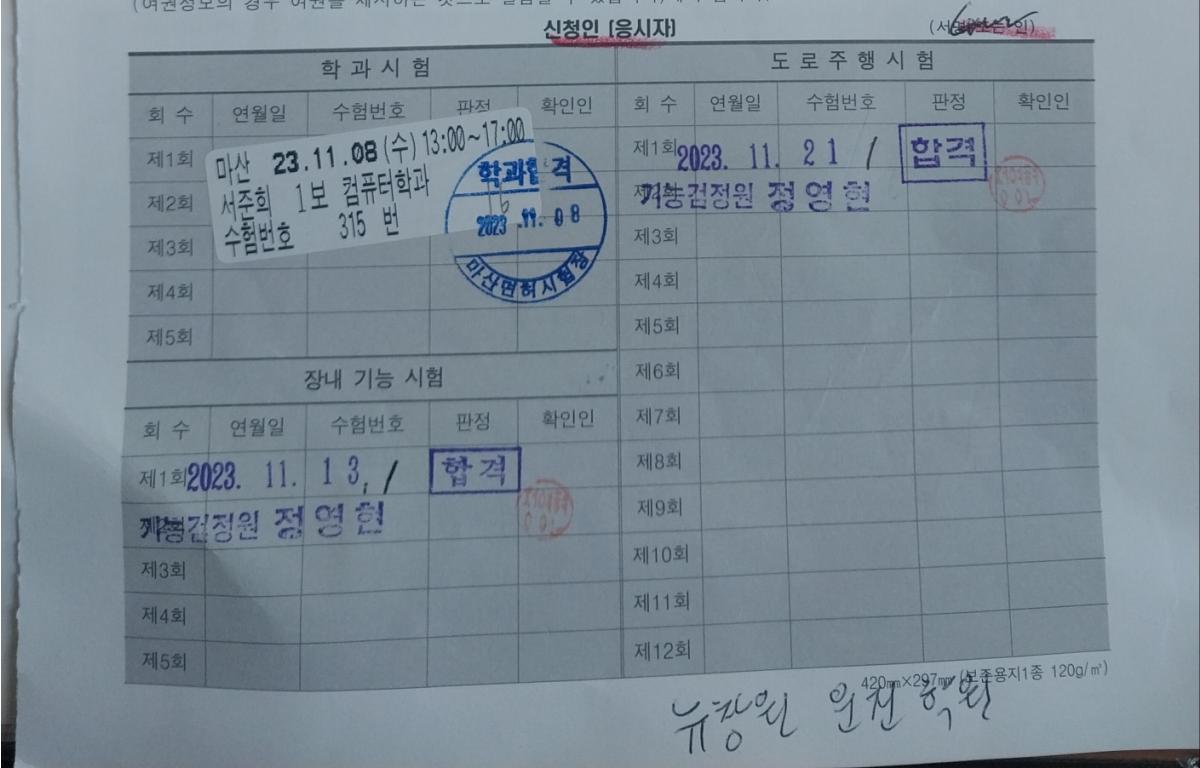 신청인 [응시자]
학 과 시 험
회 수 연월일 수험번호 판정 확인인
제1회
제2회
제3회
제4회
제5회
마산 23.11.08 (수) 13:00~17:00
서준희 1보 컴퓨터학과
수험번호 315 번
학과합격
2023 .11. 08
마산면허시험장
장내 기능 시험
회 수 연월일 수험번호 판정 확인인
제1회 2023. 11. 13, / 합격
기능검정원 정영현
제3회
제4회
제5회
도 로 주 행 시 험
회 수 연월일 수험번호 판정 확인인
제1회 2023. 11. 21 / 합격
기능검정원 정영현
제3회
제4회
제5회
제6회
제7회
제8회
제9회
제10회
제11회
제12회
420㎜×297㎜ (보존용지1종 120g/㎡)
뉴창원 운전 학원